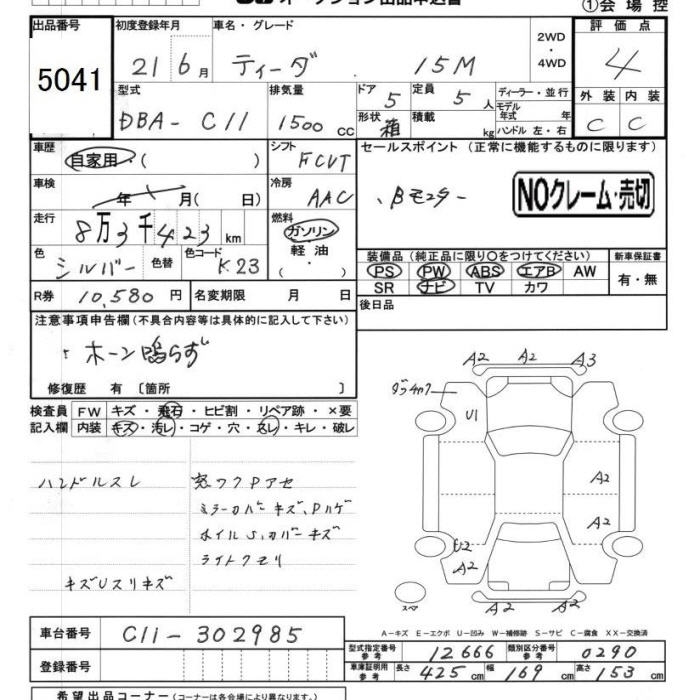 ①会場控
出品番号 初度登録年月 車名・グレード 評価点
5041 21 6月 ティーダ 15M 2WD・4WD 4
型式 排気量 ドア 5 定員 5人 ディーラー・並行 外装 内装
DBA-C11 1500cc 形状 箱 積載 kg モデル年式 年 ハンドル 左・右 C C
車歴 自家用・( ) シフト FCVT セールスポイント (正常に機能するものに限ります)
車検 年 月( 日) 冷房 AAC NOクレーム・売切
走行 8万3千423km 燃料 ガソリン 軽油 ( ・ )
色 シルバー 色替 色コード K23
装備品 (純正品に限り○をつけてください) 新車保証書
PS PW ABS エアB AW 有・無
SR ナビ TV カワ
R券 10,580円 名変期限 月 日 後日品
注意事項申告欄 (不具合内容等は具体的に記入して下さい)
ホーン鳴らず
修復歴 有 〔箇所 〕
検査員 FW キズ・飛石・ヒビ割・リペア跡・×要
記入欄 内装 キズ・汚レ・コゲ・穴・スレ・キレ・破レ
A2 A2 A3
U1
ハンドルスレ 窓ワクPアセ A2
ミラーカバーキズ、Pハゲ A2
ホイルS、カバーキズ U2
ライトクモリ A2 A2
キズUスリキズ
スペア A2 A2
A-キズ E-エクボ U-凹み W-補修跡 S-サビ C-腐食 XX-交換済
車台番号 C11-302985
型式指定番号 参考 12666 類別区分番号 参考 0290
登録番号 車庫証明用 参考 長さ 425cm 幅 169cm 高さ 153cm
希望出品コーナー (内容は各会場により異なります。)